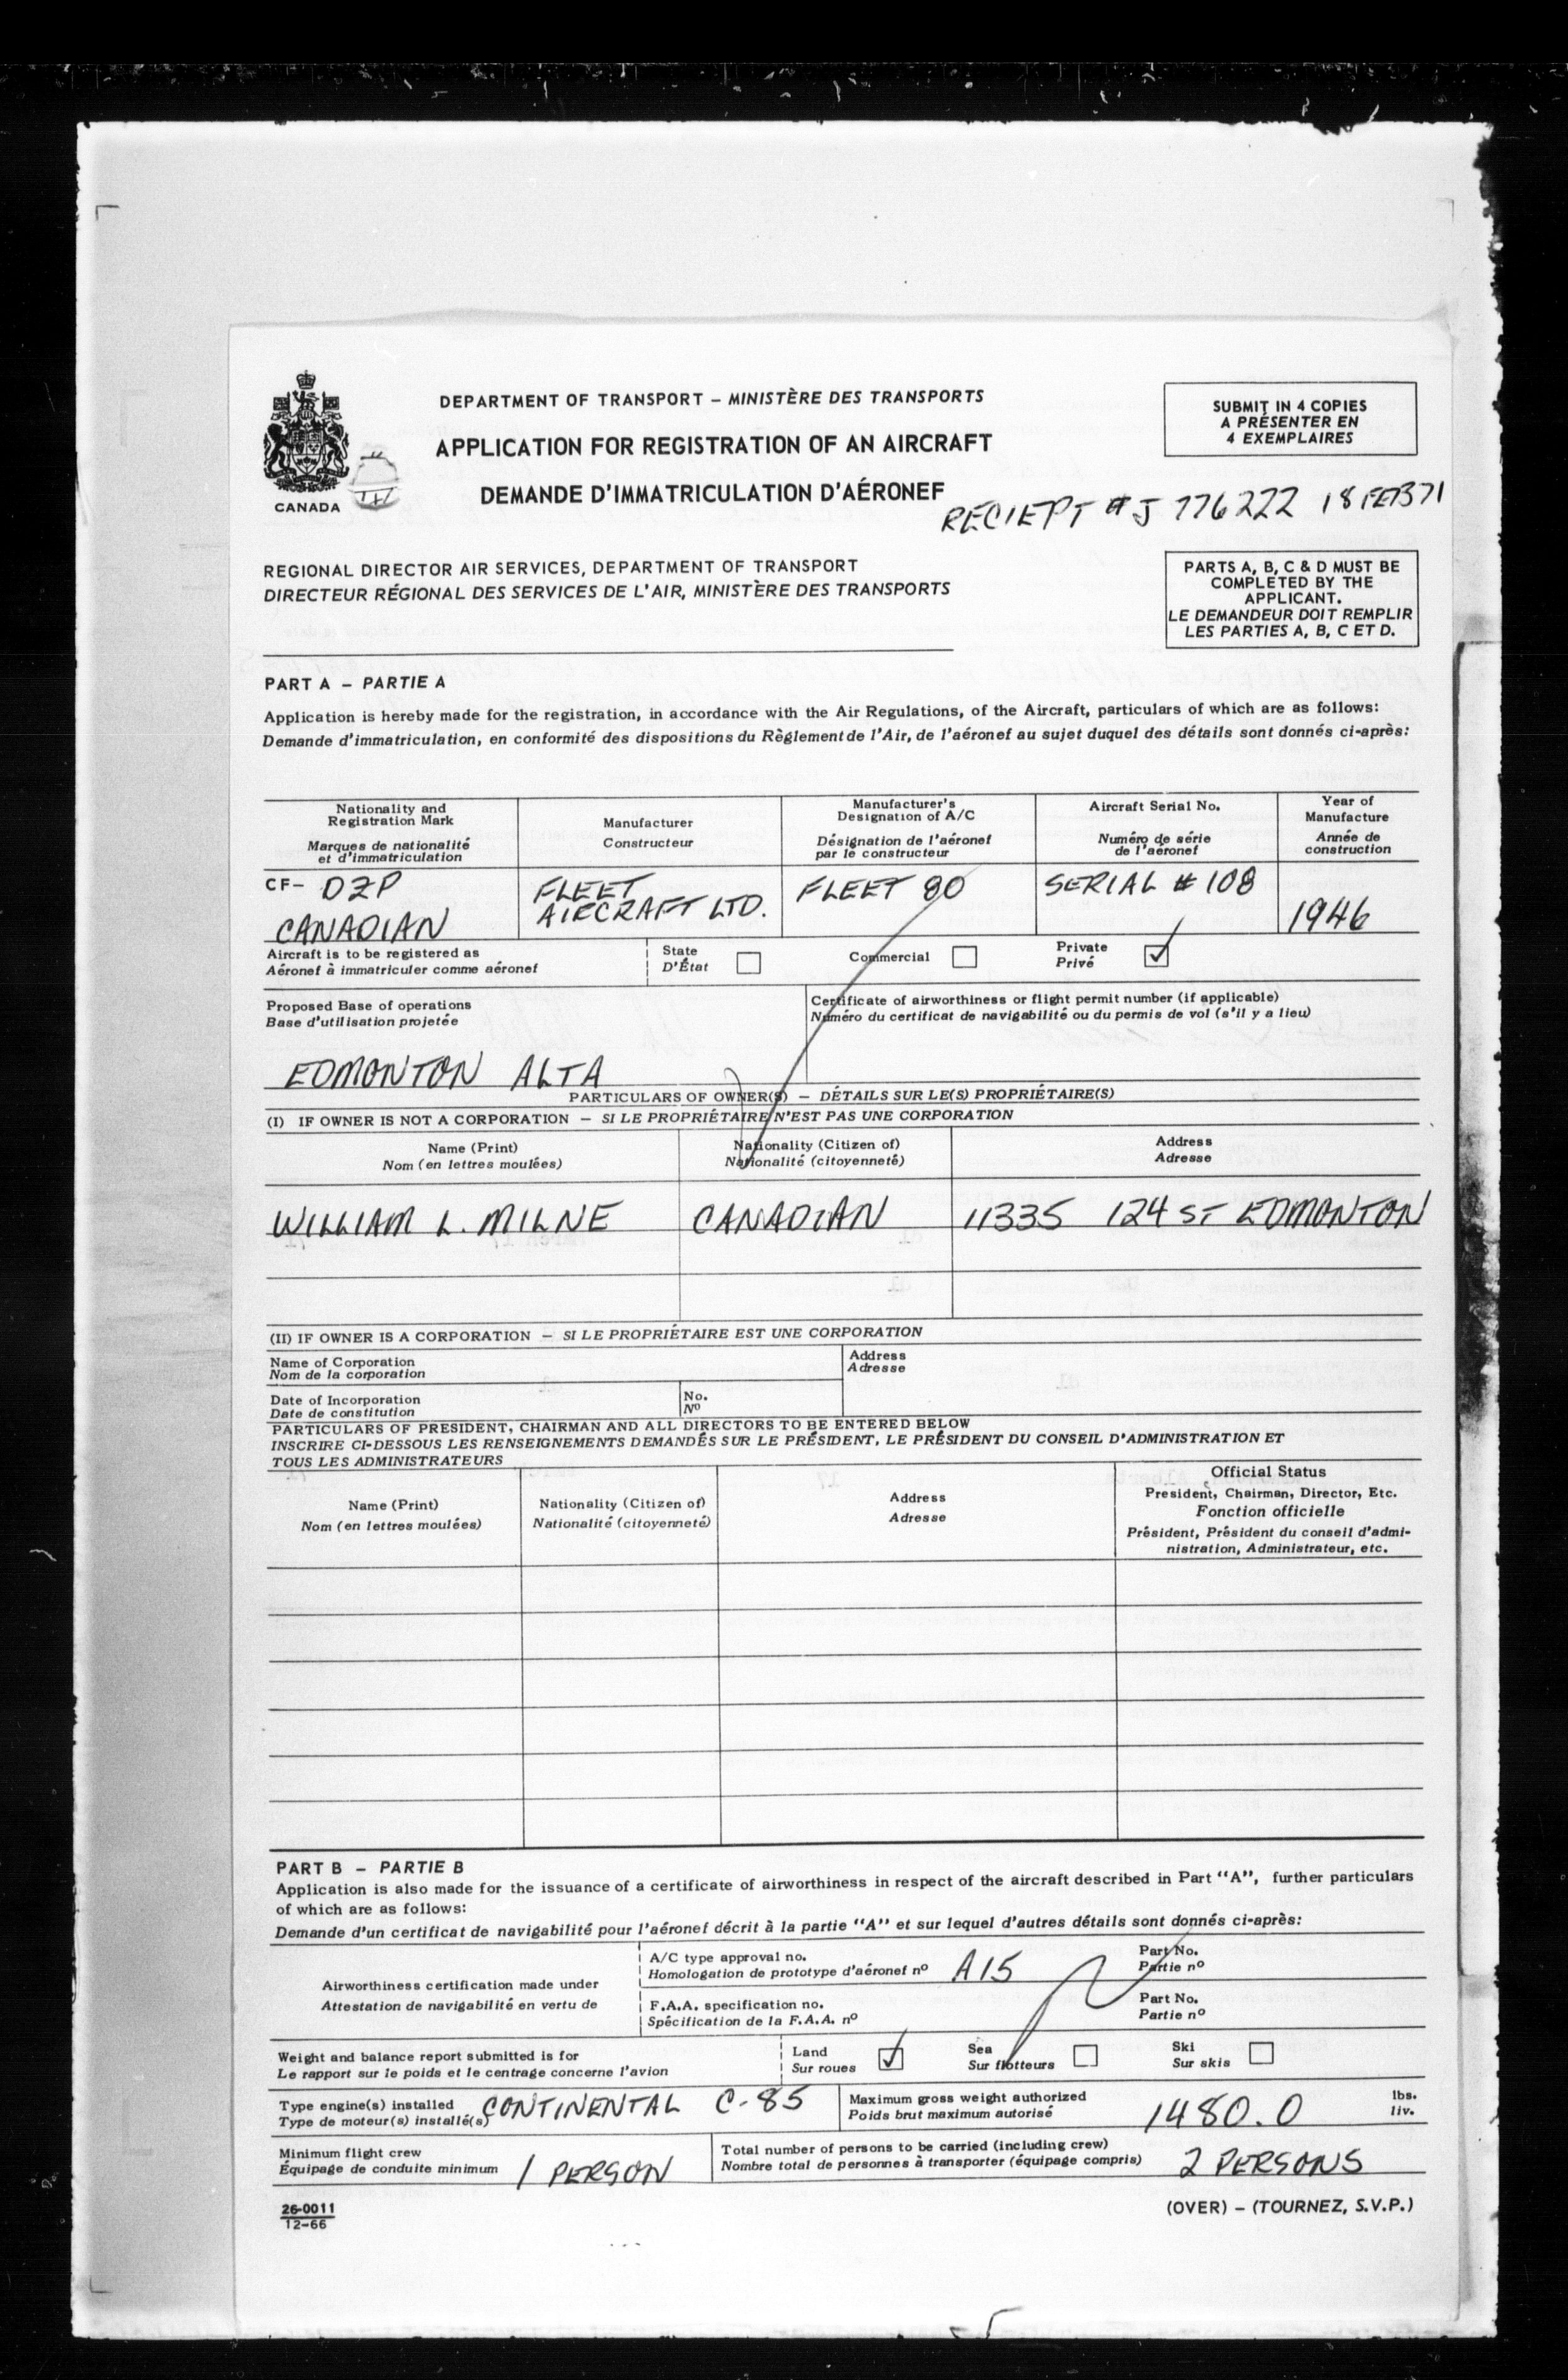 DEPARTMENT OF TRANSPORT – MINISTÈRE DES TRANSPORTS
APPLICATION FOR REGISTRATION OF AN AIRCRAFT
DEMANDE D'IMMATRICULATION D'AÉRONEF
CANADA
SUBMIT IN 4 COPIES
A PRÉSENTER EN
4 EXEMPLAIRES
RECIEPT # J 776222 18 FEB 71
REGIONAL DIRECTOR AIR SERVICES, DEPARTMENT OF TRANSPORT
DIRECTEUR RÉGIONAL DES SERVICES DE L'AIR, MINISTÈRE DES TRANSPORTS
PARTS A, B, C & D MUST BE
COMPLETED BY THE
APPLICANT.
LE DEMANDEUR DOIT REMPLIR
LES PARTIES A, B, C ET D.
PART A – PARTIE A
Application is hereby made for the registration, in accordance with the Air Regulations, of the Aircraft, particulars of which are as follows:
Demande d'immatriculation, en conformité des dispositions du Règlement de l'Air, de l'aéronef au sujet duquel des détails sont donnés ci-après:
Nationality and
Registration Mark
Marques de nationalité
et d'immatriculation
Manufacturer
Constructeur
Manufacturer's
Designation of A/C
Désignation de l'aéronef
par le constructeur
Aircraft Serial No.
Numéro de série
de l'aéronef
Year of
Manufacture
Année de
construction
CF– DZP
CANADIAN
FLEET
AIRCRAFT LTD.
FLEET 80
SERIAL # 108
1946
Aircraft is to be registered as
Aéronef à immatriculer comme aéronef
State
D'État
Commercial
Private
Privé
Proposed Base of operations
Base d'utilisation projetée
EDMONTON ALTA
Certificate of airworthiness or flight permit number (if applicable)
Numéro du certificat de navigabilité ou du permis de vol (s'il y a lieu)
PARTICULARS OF OWNER(S) – DÉTAILS SUR LE(S) PROPRIÉTAIRE(S)
(I) IF OWNER IS NOT A CORPORATION – SI LE PROPRIÉTAIRE N'EST PAS UNE CORPORATION
Name (Print)
Nom (en lettres moulées)
Nationality (Citizen of)
Nationalité (citoyenneté)
Address
Adresse
WILLIAM L. MILNE CANADIAN 11335 124 ST EDMONTON
(II) IF OWNER IS A CORPORATION – SI LE PROPRIÉTAIRE EST UNE CORPORATION
Name of Corporation
Nom de la corporation
Address
Adresse
Date of Incorporation
Date de constitution
No.
Nº
PARTICULARS OF PRESIDENT, CHAIRMAN AND ALL DIRECTORS TO BE ENTERED BELOW
INSCRIRE CI-DESSOUS LES RENSEIGNEMENTS DEMANDÉS SUR LE PRÉSIDENT, LE PRÉSIDENT DU CONSEIL D'ADMINISTRATION ET
TOUS LES ADMINISTRATEURS
Name (Print)
Nom (en lettres moulées)
Nationality (Citizen of)
Nationalité (citoyenneté)
Address
Adresse
Official Status
President, Chairman, Director, Etc.
Fonction officielle
Président, Président du conseil d'admi-
nistration, Administrateur, etc.
PART B – PARTIE B
Application is also made for the issuance of a certificate of airworthiness in respect of the aircraft described in Part "A", further particulars
of which are as follows:
Demande d'un certificat de navigabilité pour l'aéronef décrit à la partie "A" et sur lequel d'autres détails sont donnés ci-après:
Airworthiness certification made under
Attestation de navigabilité en vertu de
A/C type approval no.
Homologation de prototype d'aéronef nº A15
Part No.
Partie nº
F.A.A. specification no.
Spécification de la F.A.A. nº
Part No.
Partie nº
Weight and balance report submitted is for
Le rapport sur le poids et le centrage concerne l'avion
Land
Sur roues
Sea
Sur flotteurs
Ski
Sur skis
Type engine(s) installed
Type de moteur(s) installé(s)
CONTINENTAL C-85
Maximum gross weight authorized
Poids brut maximum autorisé
1480.0
lbs.
liv.
Minimum flight crew
Équipage de conduite minimum
1 PERSON
Total number of persons to be carried (including crew)
Nombre total de personnes à transporter (équipage compris)
2 PERSONS
26-0011
12-66
(OVER) – (TOURNEZ, S.V.P.)